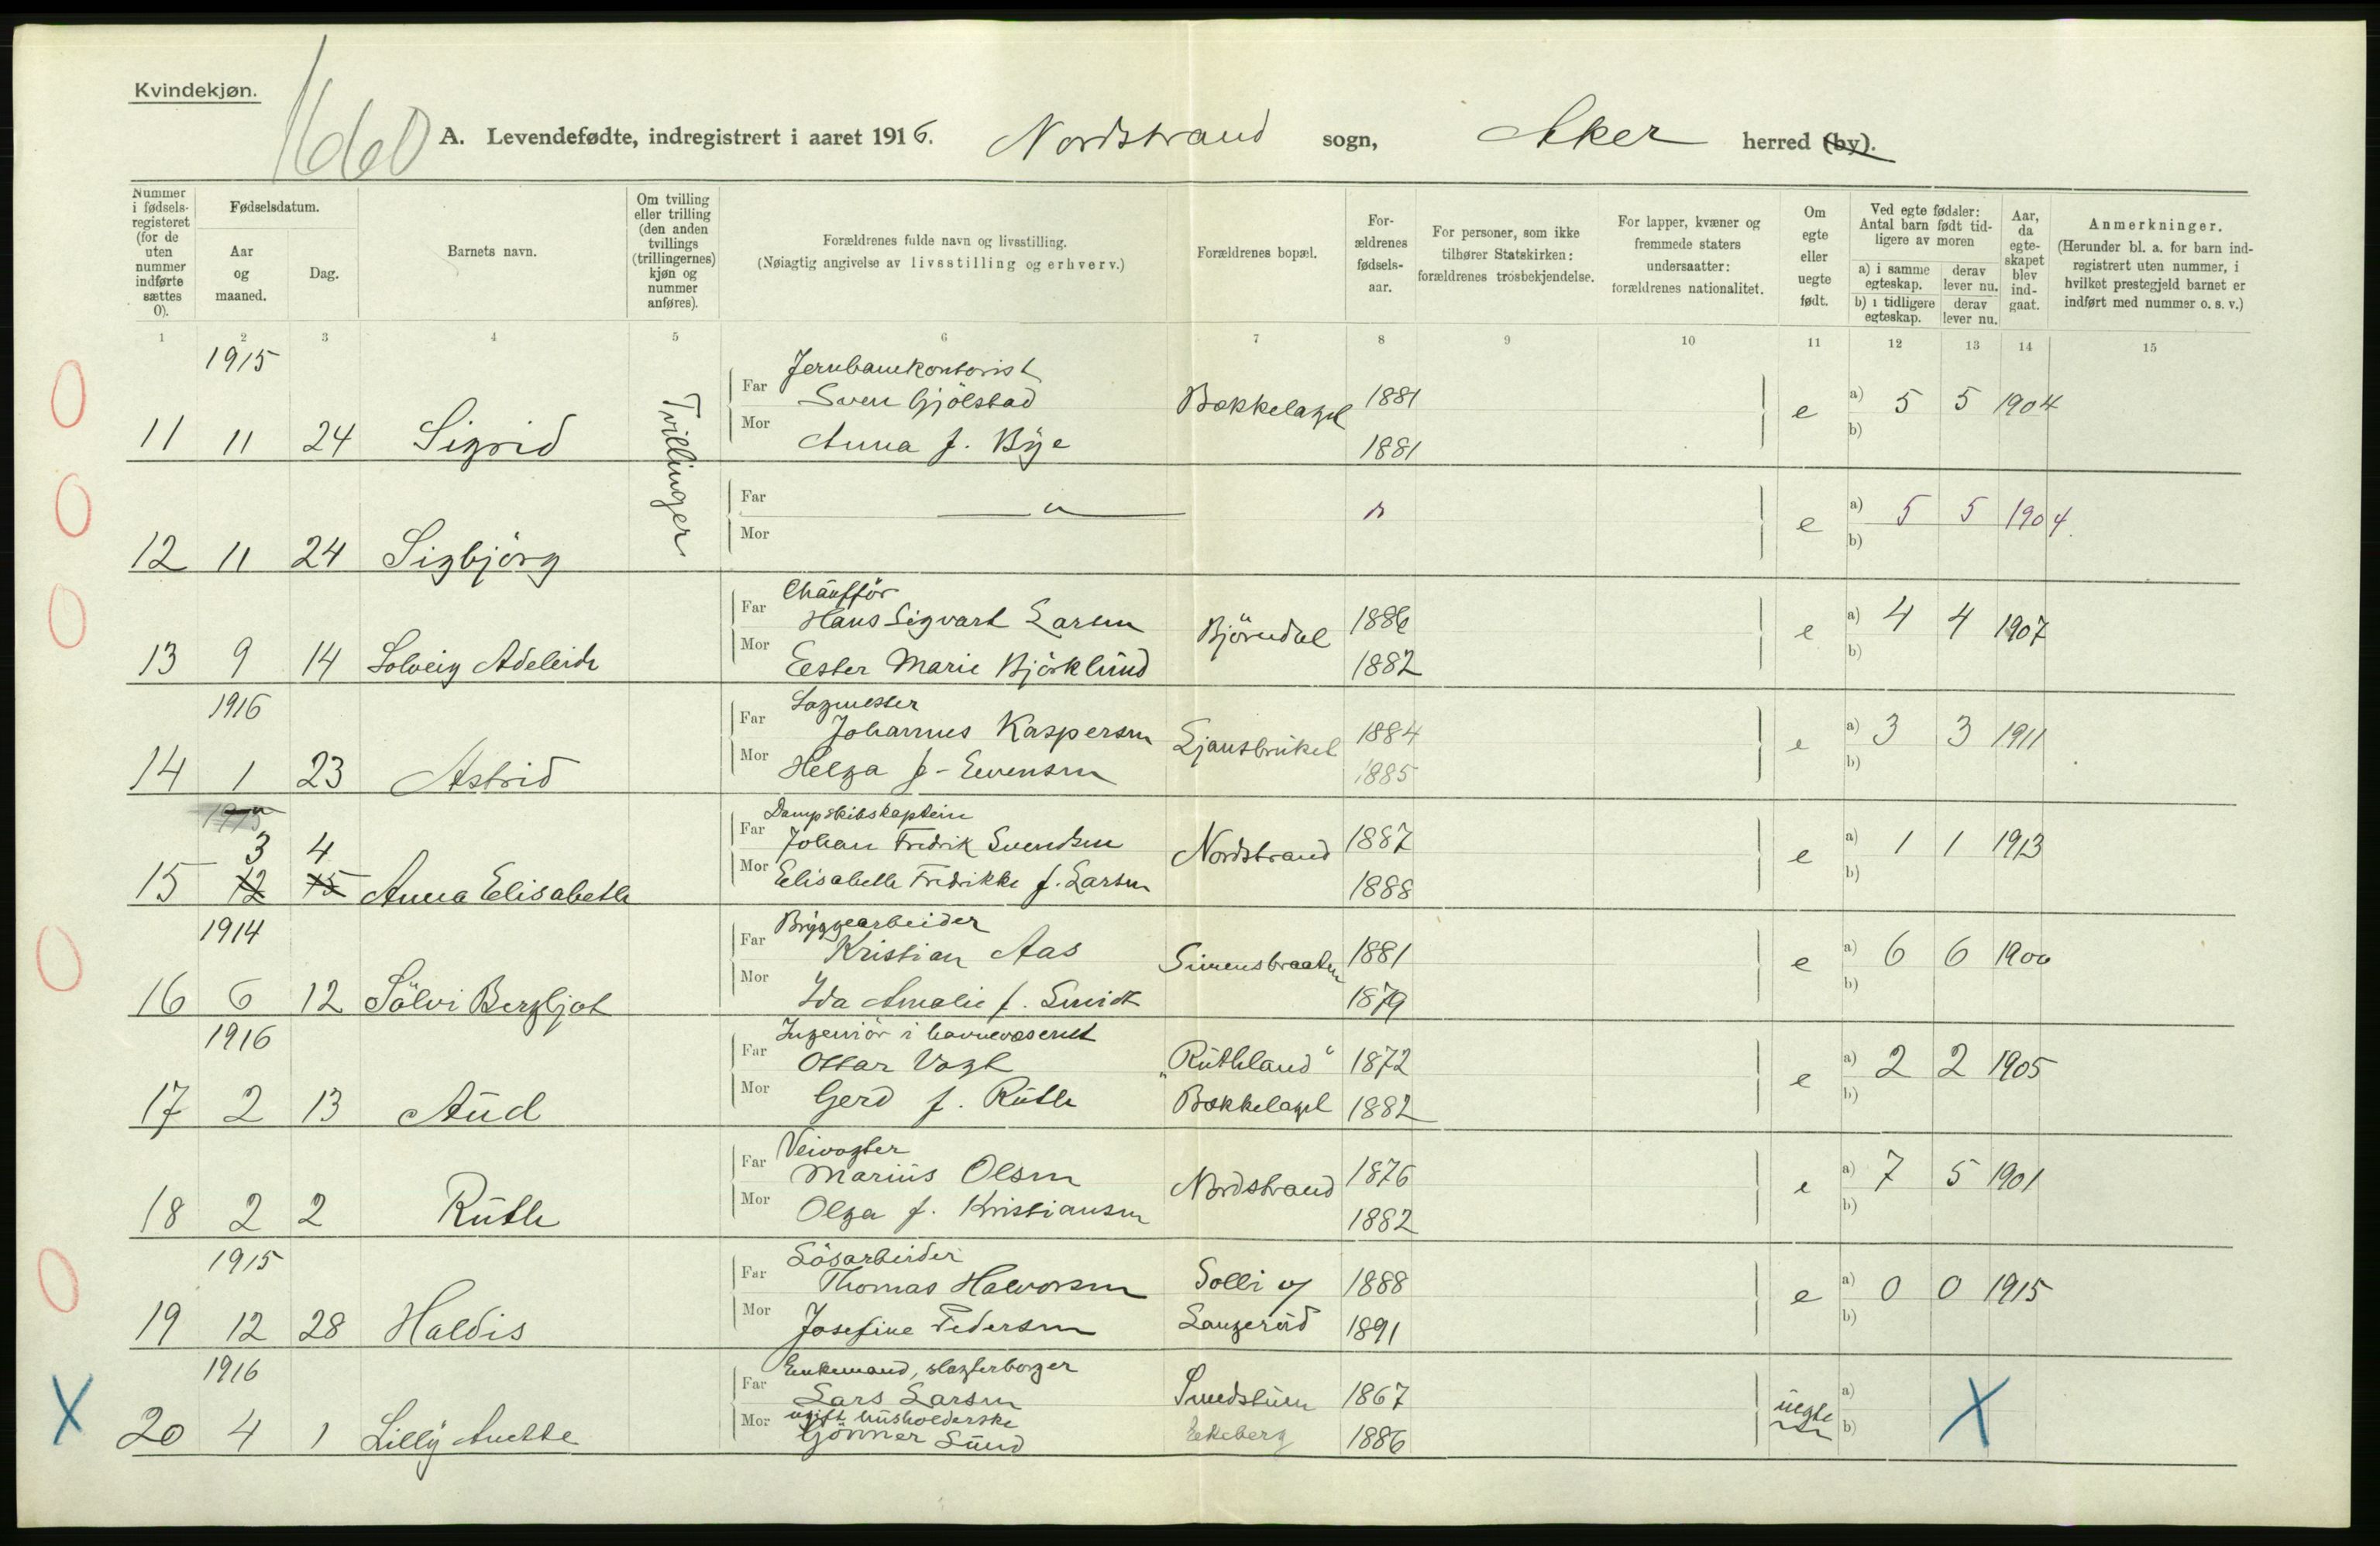 Kvindekjøn.
A. Levendefødte, indregistrert i aaret 1916. Nordstrand sogn, Aker herred (by).
Nummer i fødsels-registeret (for de uten nummer indførte sættes 0).
Fødselsdatum.
Aar og maaned.
Dag.
Barnets navn.
Om tvilling eller trilling (den anden tvillings (trillingernes) kjøn og nummer anføres).
Forældrenes fulde navn og livsstilling.
(Nøiagtig angivelse av livsstilling og erhverv.)
Forældrenes bopæl.
For-ældrenes fødsels-aar.
For personer, som ikke tilhører Statskirken: forældrenes trosbekjendelse.
For lapper, kvæner og fremmede staters undersaatter: forældrenes nationalitet.
Om egte eller uegte født.
Ved egte fødsler: Antal barn født tid-ligere av moren
a) i samme egteskap. derav lever nu.
b) i tidligere egteskap. derav lever nu.
Aar, da egte-skapet blev ind-gaat.
Anmerkninger.
(Herunder bl. a. for barn ind-registrert uten nummer, i hvilket prestegjeld barnet er indført med nummer o. s. v.)
1 2 3 4 5 6 7 8 9 10 11 12 13 14 15
1915
Jernbanekontorist
Far Sven Gjölstad Bækkelaget 1881 e a) 5 5 1904
11 11 24 Sigrid Tvillinger Mor Anna f. Bye 1881 b)
Far — " — " e a) 5 5 1904
12 11 24 Sigbjörg Mor b)
Chaufför
Far Hans Sigvart Larsen Björndal 1886 e a) 4 4 1907
13 9 14 Solveig Adeleide Mor Ester Marie Björklund 1882 b)
1916
Sagmester
Far Johannes Kaspersen Ljansbruket 1884 e a) 3 3 1911
14 1 23 Astrid Mor Helga f. Evensen 1885 b)
Dampskibskaptein
3 4 Far Johan Fredrik Svendsen Nordstrand 1887 e a) 1 1 1913
15 12 15 Anna Elisabeth Mor Elisabeth Fredrikke f. Larsen 1888 b)
1914
Bryggearbeider
Far Kristian Aas Simensbraaten 1881 e a) 6 6 1900
16 6 12 Sölvi Bergljot Mor Ida Amalie f. Smidt 1879 b)
1916
Ingeniör i havnevæsenet
Far Ottar Vogt "Ruthland" 1872 e a) 2 2 1905
17 2 13 Aud Mor Gerd f. Ruth Bækkelaget 1882 b)
Veivogter
Far Marius Olsen Nordstrand 1876 e a) 7 5 1901
18 2 2 Ruth Mor Olga f. Kristiansen 1882 b)
1915
Lösarbeider
Far Thomas Halvorsen Solli og 1888 e a) 0 0 1915
19 12 28 Haldis Mor Josefine Pedersen Langerud 1891 b)
1916
Enkemand, slagterborger
Far Lars Larsen Smedstuen 1867 uegte a)
ugift husholderske
20 4 1 Lilly Anette Mor Gönner Sund Ekeberg 1886 b)